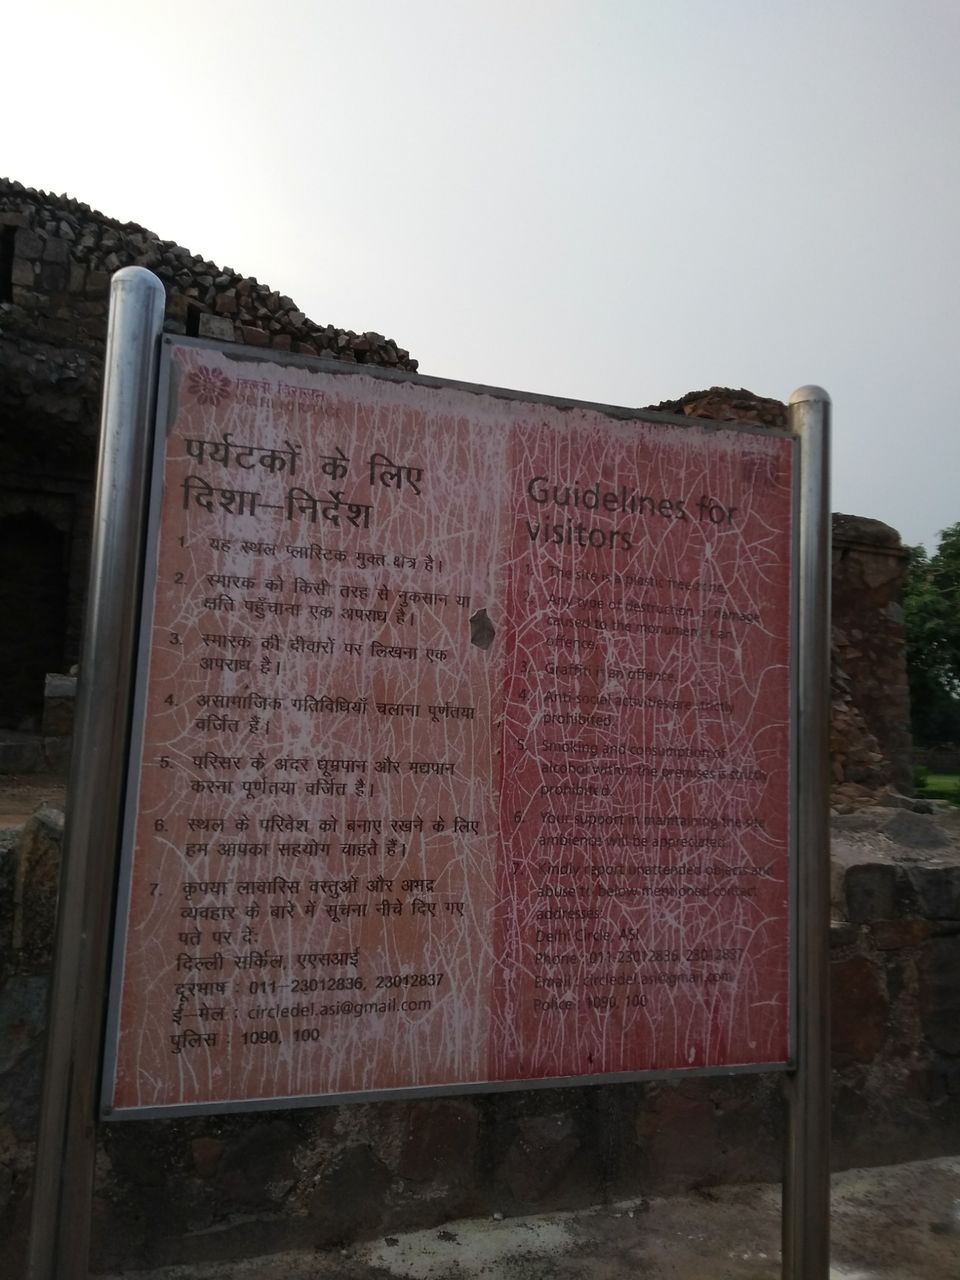 दिल्ली विरासत
DELHI HERITAGE
पर्यटकों के लिए
दिशा–निर्देश
1. यह स्थल प्लास्टिक मुक्त क्षेत्र है।
2. स्मारक को किसी तरह से नुकसान या
क्षति पहुँचाना एक अपराध है।
3. स्मारक की दीवारों पर लिखना एक
अपराध है।
4. असामाजिक गतिविधियाँ चलाना पूर्णतया
वर्जित हैं।
5. परिसर के अंदर धूम्रपान और मद्यपान
करना पूर्णतया वर्जित है।
6. स्थल के परिवेश को बनाए रखने के लिए
हम आपका सहयोग चाहते हैं।
7. कृपया लावारिस वस्तुओं और अभद्र
व्यवहार के बारे में सूचना नीचे दिए गए
पते पर दें:
दिल्ली सर्किल, एएसआई
दूरभाष : 011–23012836, 23012837
ई–मेल : circledel.asi@gmail.com
पुलिस : 1090, 100
Guidelines for
visitors
1. The site is a plastic free zone.
2. Any type of destruction or damage
caused to the monument is an
offence.
3. Graffiti is an offence.
4. Anti-social activities are strictly
prohibited.
5. Smoking and consumption of
alcohol within the premises is strictly
prohibited.
6. Your support in maintaining the site
ambience will be appreciated.
7. Kindly report unattended objects and
abuse to below mentioned contact
addresses:
Delhi Circle, ASI
Phone : 011-23012836, 23012837
Email : circledel.asi@gmail.com
Police : 1090, 100